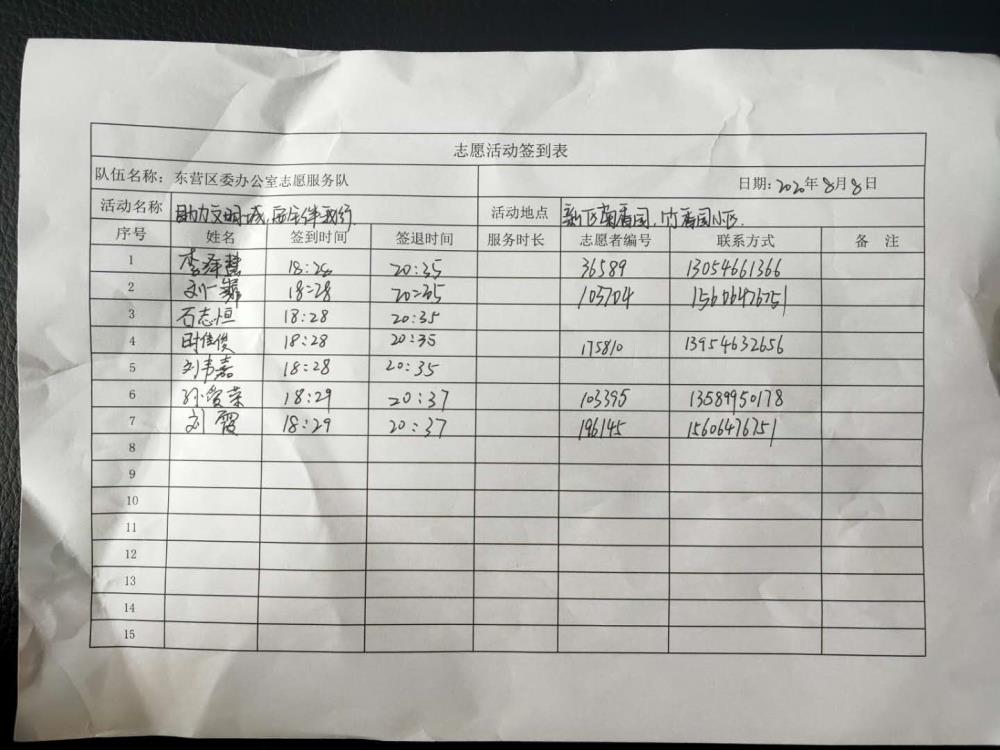 志愿活动签到表
队伍名称：东营区委办公室志愿服务队 日期：2020年8月8日
活动名称 助力文明城， 活动地点 新区菊香园，竹香园小区.
序号 姓名 签到时间 签退时间 服务时长 志愿者编号 联系方式 备 注
1 李泽慧 18:28 20:35 36589 13054661366
2 刘一 18:28 20:35 103704 15606476751
3 石志恒 18:28 20:35
4 时佳俊 18:28 20:35 175810 13954632656
5 刘韦嘉 18:28 20:35
6 孙爱荣 18:29 20:37 103395 13589950178
7 刘霞 18:29 20:37 196145 15606476751
8
9
10
11
12
13
14
15